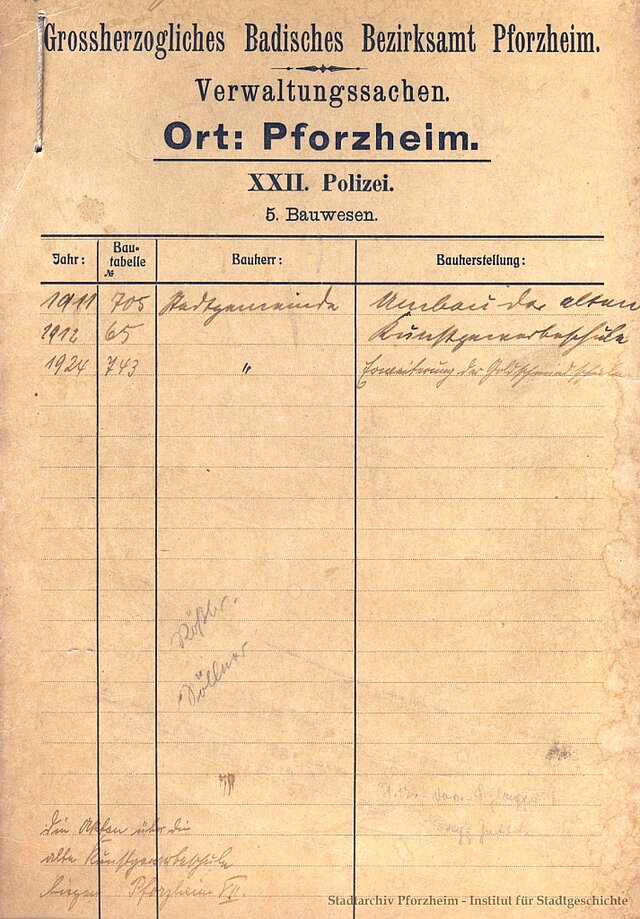 Grossherzogliches Badisches Bezirksamt Pforzheim.
Verwaltungssachen.
Ort: Pforzheim.
XXII. Polizei.
5. Bauwesen.
Jahr: Bautabelle № Bauherr: Bauherstellung:
1911 705 Stadtgemeinde Umbau der alten
1912 65 Kunstgewerbeschule
1924 743 " Erweiterung der Goldschmiedschule
Die Akten über die
alte Kunstgewerbeschule
liegen Pforzheim VII.
Stadtarchiv Pforzheim - Institut für Stadtgeschichte